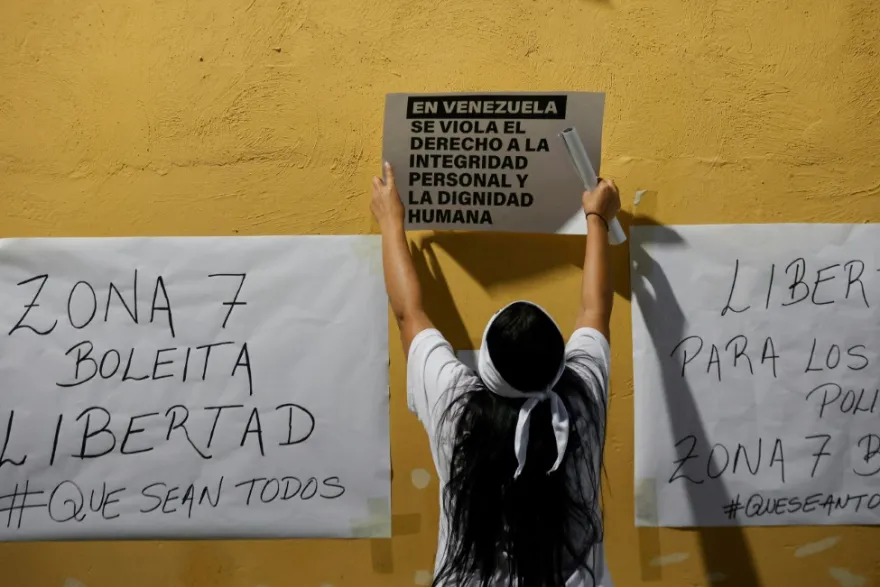 EN VENEZUELA
SE VIOLA EL
DERECHO A LA
INTEGRIDAD
PERSONAL Y
LA DIGNIDAD
HUMANA
ZONA 7
BOLEITA
LIBERTAD
#QUE SEAN TODOS
LIBERT
PARA LOS
POLI
ZONA 7 B
#QUESEANTO